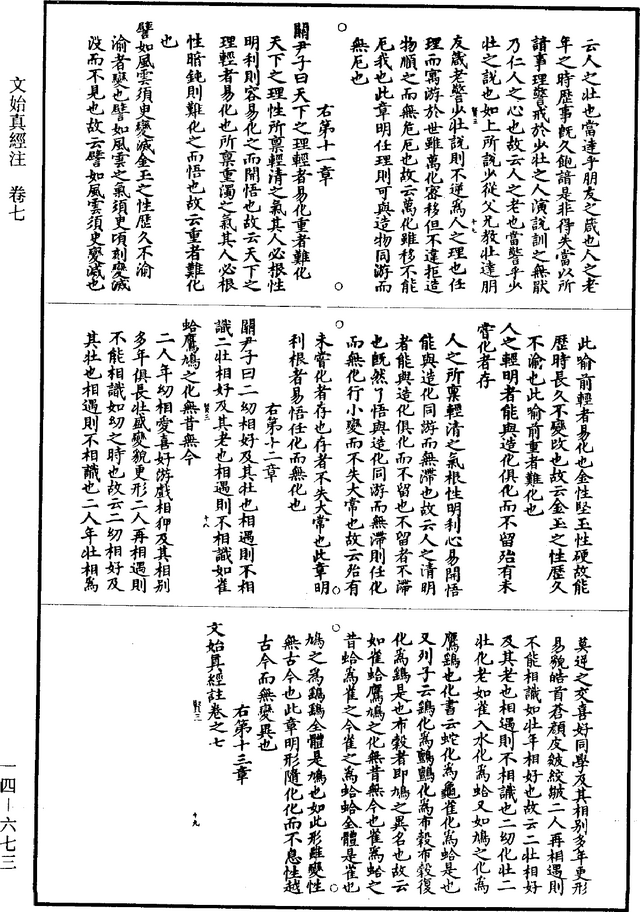 云人之壯也當達乎朋友之箴也人之老
年之時歷事既久飽諳是非得失當以所
諳事理警戒於少壯之人演說訓之無厭
乃仁人之心也故云人之老也當警乎少
壯之說也如上所說少從父兄教壯達朋
友箴老警少壯說則不逆為人之理也任
理而寓游於世雖萬化密移但不違拒造
物順之而無危厄也故云萬化雖移不能
厄我也此章明任理則可與造物同游而
無厄也
右第十一章
關尹子曰天下之理輕者易化重者難化
天下之理性所禀輕清之氣其人必根性
明利則容易化之而開悟也故云天下之
理輕者易化也所禀重濁之氣其人必根
性暗鈍則難化之而悟也故云重者難化
也
譬如風雲須臾變滅金玉之性歷久不渝
渝者變也譬如風雲之氣須臾頃刻變滅
没而不見也故云譬如風雲須臾變滅也
此喻前輕者易化也金性堅玉性硬故能
歷時長久不變改也故云金玉之性歷久
不渝也此喻前重者難化也
人之輕明者能與造化俱化而不留殆有未
嘗化者存
人之所禀輕清之氣根性明利心易開悟
能與造化同游而無滯也故云人之清明
者能與造化俱化而不留也不留者不滯
也既然了悟與造化同游而無滯則任化
而無化行小變而不失大常也故云殆有
未嘗化者存也存者不失大常也此章明
利根者易悟任化而無化也
右第十二章
關尹子曰二幼相好及其壯也相遇則不相
識二壯相好及其老也相遇則不相識如雀
蛤鷹鳩之化無昔無今
二人年幼相愛喜好游戲相狎及其相別
多年俱長壯盛變貌更形二人再相遇則
不能相識如幼之時也故云二幼相好及
其壯也相遇則不相識也二人年壯相為
莫逆之交喜好同學及其相別多年更形
易貌皓首蒼顏皮皴紋皺二人再相遇則
不能相識如壯年相好也故云二壯相好
及其老也相遇則不相識也二幼化壯二
壯化老如雀入水化為蛤又如鳩之化為
鷹鷂也化書云蛇化為龜雀化為蛤是也
又列子云鷂化為鸇鸇化為布穀布穀復
化為鷂是也布穀者即鳩之異名也故云
如雀蛤鷹鳩之化無昔無今也雀為蛤之
昔蛤為雀之今雀之為蛤蛤全體是雀也
鳩之為鷂鷂全體是鳩也如此形雖變性
無古今也此章明形隨化化而不息性越
古今而無變異也
右第十三章
文始真經註卷之七
文始真經注 卷七
一四－六七三